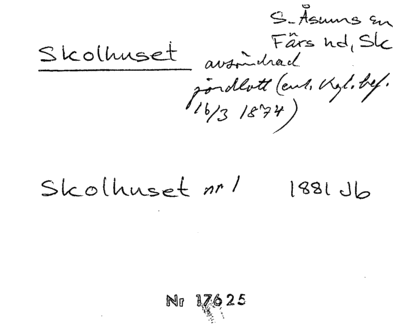 S. Åsums sn
Färs hd, Sk
Skolhuset
avsöndrad
jordlott (enl. Kgl. bef.
16/3 1874)
Skolhuset nr 1 1881 Jb
Nr 17625